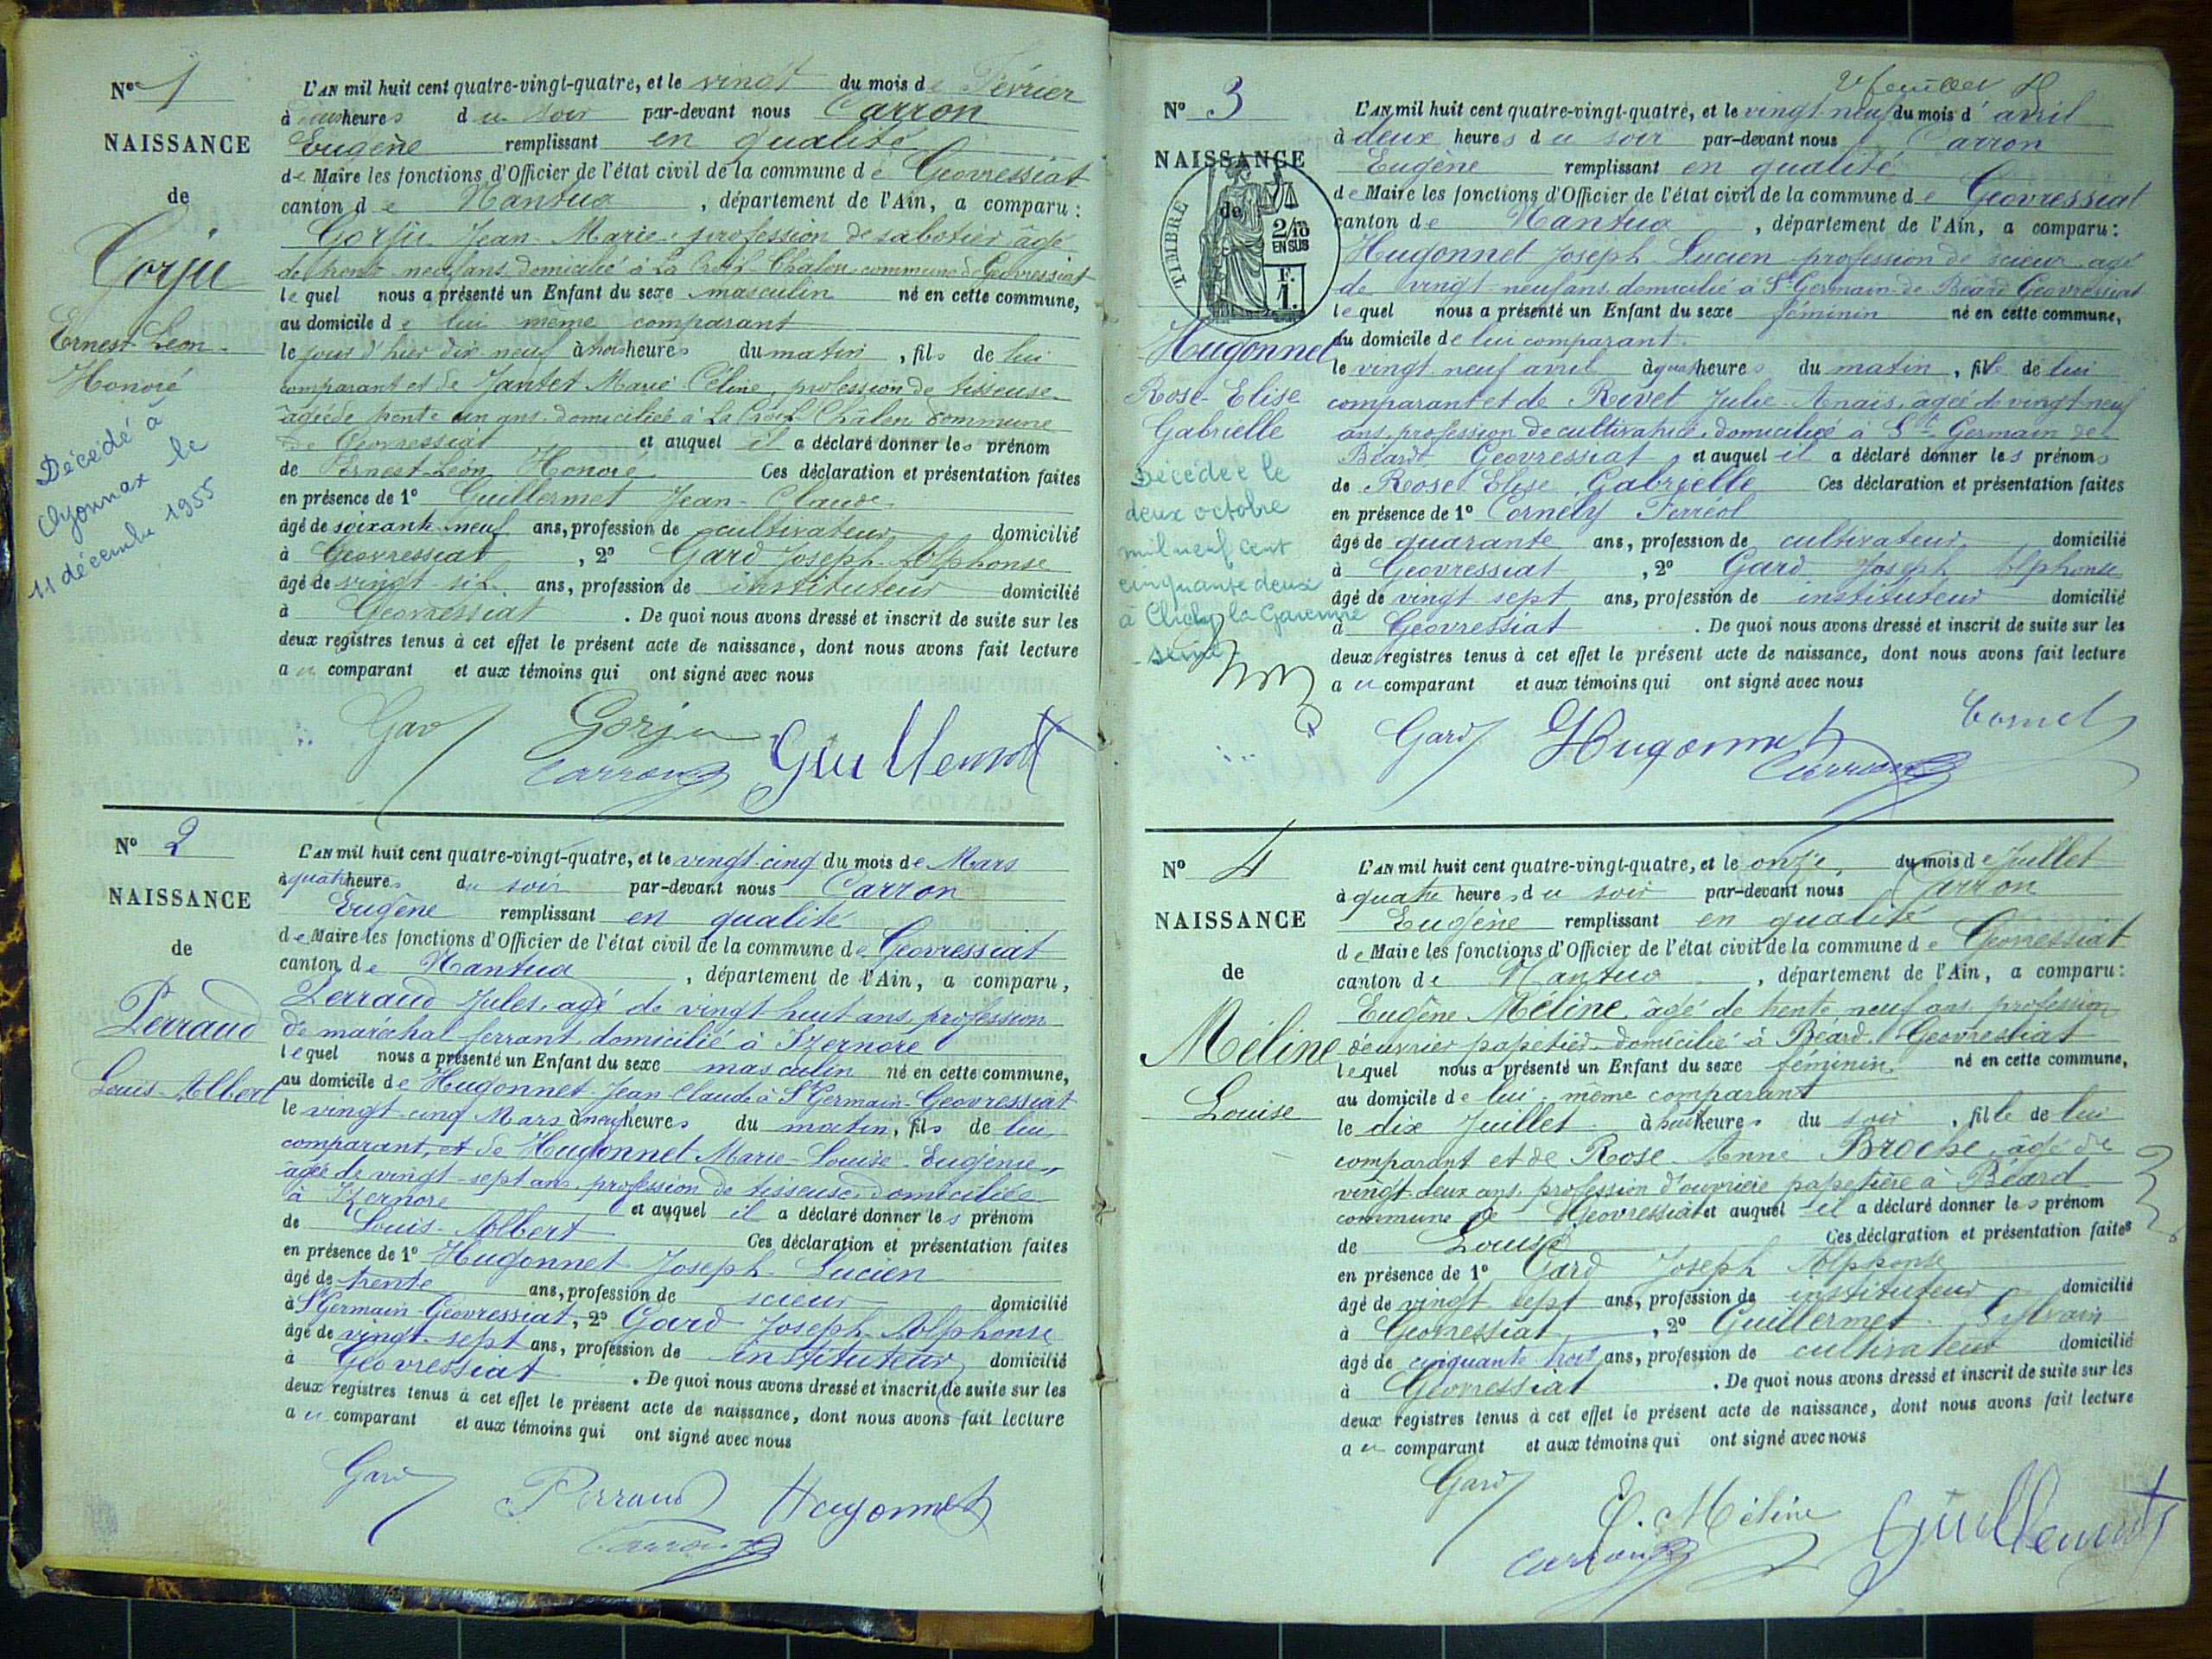 Nº 1
NAISSANCE
de
Gorju
Ernest-Léon-
Honoré
Décédé à
Oyonnax le
11 décembre 1955
L'AN mil huit cent quatre-vingt-quatre, et le vingt du mois de Février
à heures du soir par-devant nous Carron
Eugène remplissant en qualité
de Maire les fonctions d'Officier de l'état civil de la commune de Géovressiat
canton de Nantua, département de l'Ain, a comparu :
Gorju Jean-Marie, profession de sabotier âgé
de trente-neuf ans domicilié à La Croix-Châlon commune de Géovressiat
lequel nous a présenté un Enfant du sexe masculin né en cette commune,
au domicile de lui même comparant
le jour d'hier dix neuf à trois heures du matin, fils de lui
comparant et de Jantet Marie Céline, profession de tisseuse
âgée de trente un ans domiciliée à La Croix Châlon commune
de Géovressiat et auquel il a déclaré donner les prénom
de Ernest-Léon Honoré Ces déclaration et présentation faites
en présence de 1º Guillermet Jean-Claude
âgé de soixante-neuf ans, profession de cultivateur domicilié
à Géovressiat, 2º Gard Joseph-Alphonse
âgé de vingt-six ans, profession de instituteur domicilié
à Géovressiat. De quoi nous avons dressé et inscrit de suite sur les
deux registres tenus à cet effet le présent acte de naissance, dont nous avons fait lecture
au comparant et aux témoins qui ont signé avec nous
Gard Gorju
Carron Guillermet
Nº 2
NAISSANCE
de
Perraud
Louis-Albert
L'AN mil huit cent quatre-vingt-quatre, et le vingt-cinq du mois de Mars
à quatre heures du soir par-devant nous Carron
Eugène remplissant en qualité
de Maire les fonctions d'Officier de l'état civil de la commune de Géovressiat
canton de Nantua, département de l'Ain, a comparu,
Perraud Jules, âgé de vingt huit ans, profession
de maréchal ferrant domicilié à Izernore
lequel nous a présenté un Enfant du sexe masculin né en cette commune,
au domicile de Hugonnet Jean Claude à St Germain-Géovressiat
le vingt-cinq Mars à neuf heures du matin, fils de lui
comparant, et de Hugonnet Marie-Louise-Eugénie
âgée de vingt-sept ans, profession de tisseuse domiciliée
à Izernore et auquel il a déclaré donner les prénom
de Louis-Albert Ces déclaration et présentation faites
en présence de 1º Hugonnet Joseph-Lucien
âgé de trente ans, profession de scieur domicilié
à St Germain-Géovressiat, 2º Gard Joseph-Alphonse
âgé de vingt-sept ans, profession de instituteur domicilié
à Géovressiat. De quoi nous avons dressé et inscrit de suite sur les
deux registres tenus à cet effet le présent acte de naissance, dont nous avons fait lecture
au comparant et aux témoins qui ont signé avec nous
Gard Perraud Hugonnet
Carron
2e feuillet
Nº 3
NAISSANCE
de
TIMBRE
2/10
EN SUS
F.
1.
Hugonnet
Rose-Elise
Gabrielle
Décédée le
deux octobre
mil neuf cent
cinquante deux
à Clichy la Garenne
- Seine -
L'AN mil huit cent quatre-vingt-quatre, et le vingt-neuf du mois d'avril
à deux heures du soir par-devant nous Carron
Eugène remplissant en qualité
de Maire les fonctions d'Officier de l'état civil de la commune de Géovressiat
canton de Nantua, département de l'Ain, a comparu :
Hugonnet Joseph-Lucien profession de scieur âgé
de vingt-neuf ans domicilié à St Germain-de Béard Géovressiat
lequel nous a présenté un Enfant du sexe féminin né en cette commune,
au domicile de lui comparant.
le vingt neuf avril à quatre heures du matin, fille de lui
comparant et de Rivet Julie-Anaïs, âgée de vingt neuf
ans, profession de cultivatrice domiciliée à St Germain de
Béard Géovressiat et auquel il a déclaré donner les prénoms
de Rose Elise Gabrielle Ces déclaration et présentation faites
en présence de 1º Cornely Ferréol
âgé de quarante ans, profession de cultivateur domicilié
à Géovressiat, 2º Gard Joseph Alphonse
âgé de vingt sept ans, profession de instituteur domicilié
à Géovressiat. De quoi nous avons dressé et inscrit de suite sur les
deux registres tenus à cet effet le présent acte de naissance, dont nous avons fait lecture
au comparant et aux témoins qui ont signé avec nous
Gard Hugonnet
Carron
Nº 4
NAISSANCE
de
Méline
Louise
L'AN mil huit cent quatre-vingt-quatre, et le onze du mois de Juillet
à quatre heures du soir par-devant nous Carron
Eugène remplissant en qualité
de Maire les fonctions d'Officier de l'état civil de la commune de Géovressiat
canton de Nantua, département de l'Ain, a comparu :
Eugène Méline, âgé de trente neuf ans profession
d'ouvrier papetier domicilié à Béard Géovressiat
lequel nous a présenté un Enfant du sexe féminin né en cette commune,
au domicile de lui-même comparant
le dix Juillet à huit heures du soir, fille de lui
comparant et de Rose-Anne Broche, âgé de
vingt-deux ans, profession d'ouvrière papetière à Béard
commune de Géovressiat et auquel il a déclaré donner les prénom
de Louise Ces déclaration et présentation faites
en présence de 1º Gard Joseph Alphonse
âgé de vingt sept ans, profession de instituteur domicilié
à Géovressiat, 2º Guillermet Sylvain
âgé de cinquante trois ans, profession de cultivateur domicilié
à Géovressiat. De quoi nous avons dressé et inscrit de suite sur les
deux registres tenus à cet effet le présent acte de naissance, dont nous avons fait lecture
au comparant et aux témoins qui ont signé avec nous
Gard E. Méline
Carron Guillermet